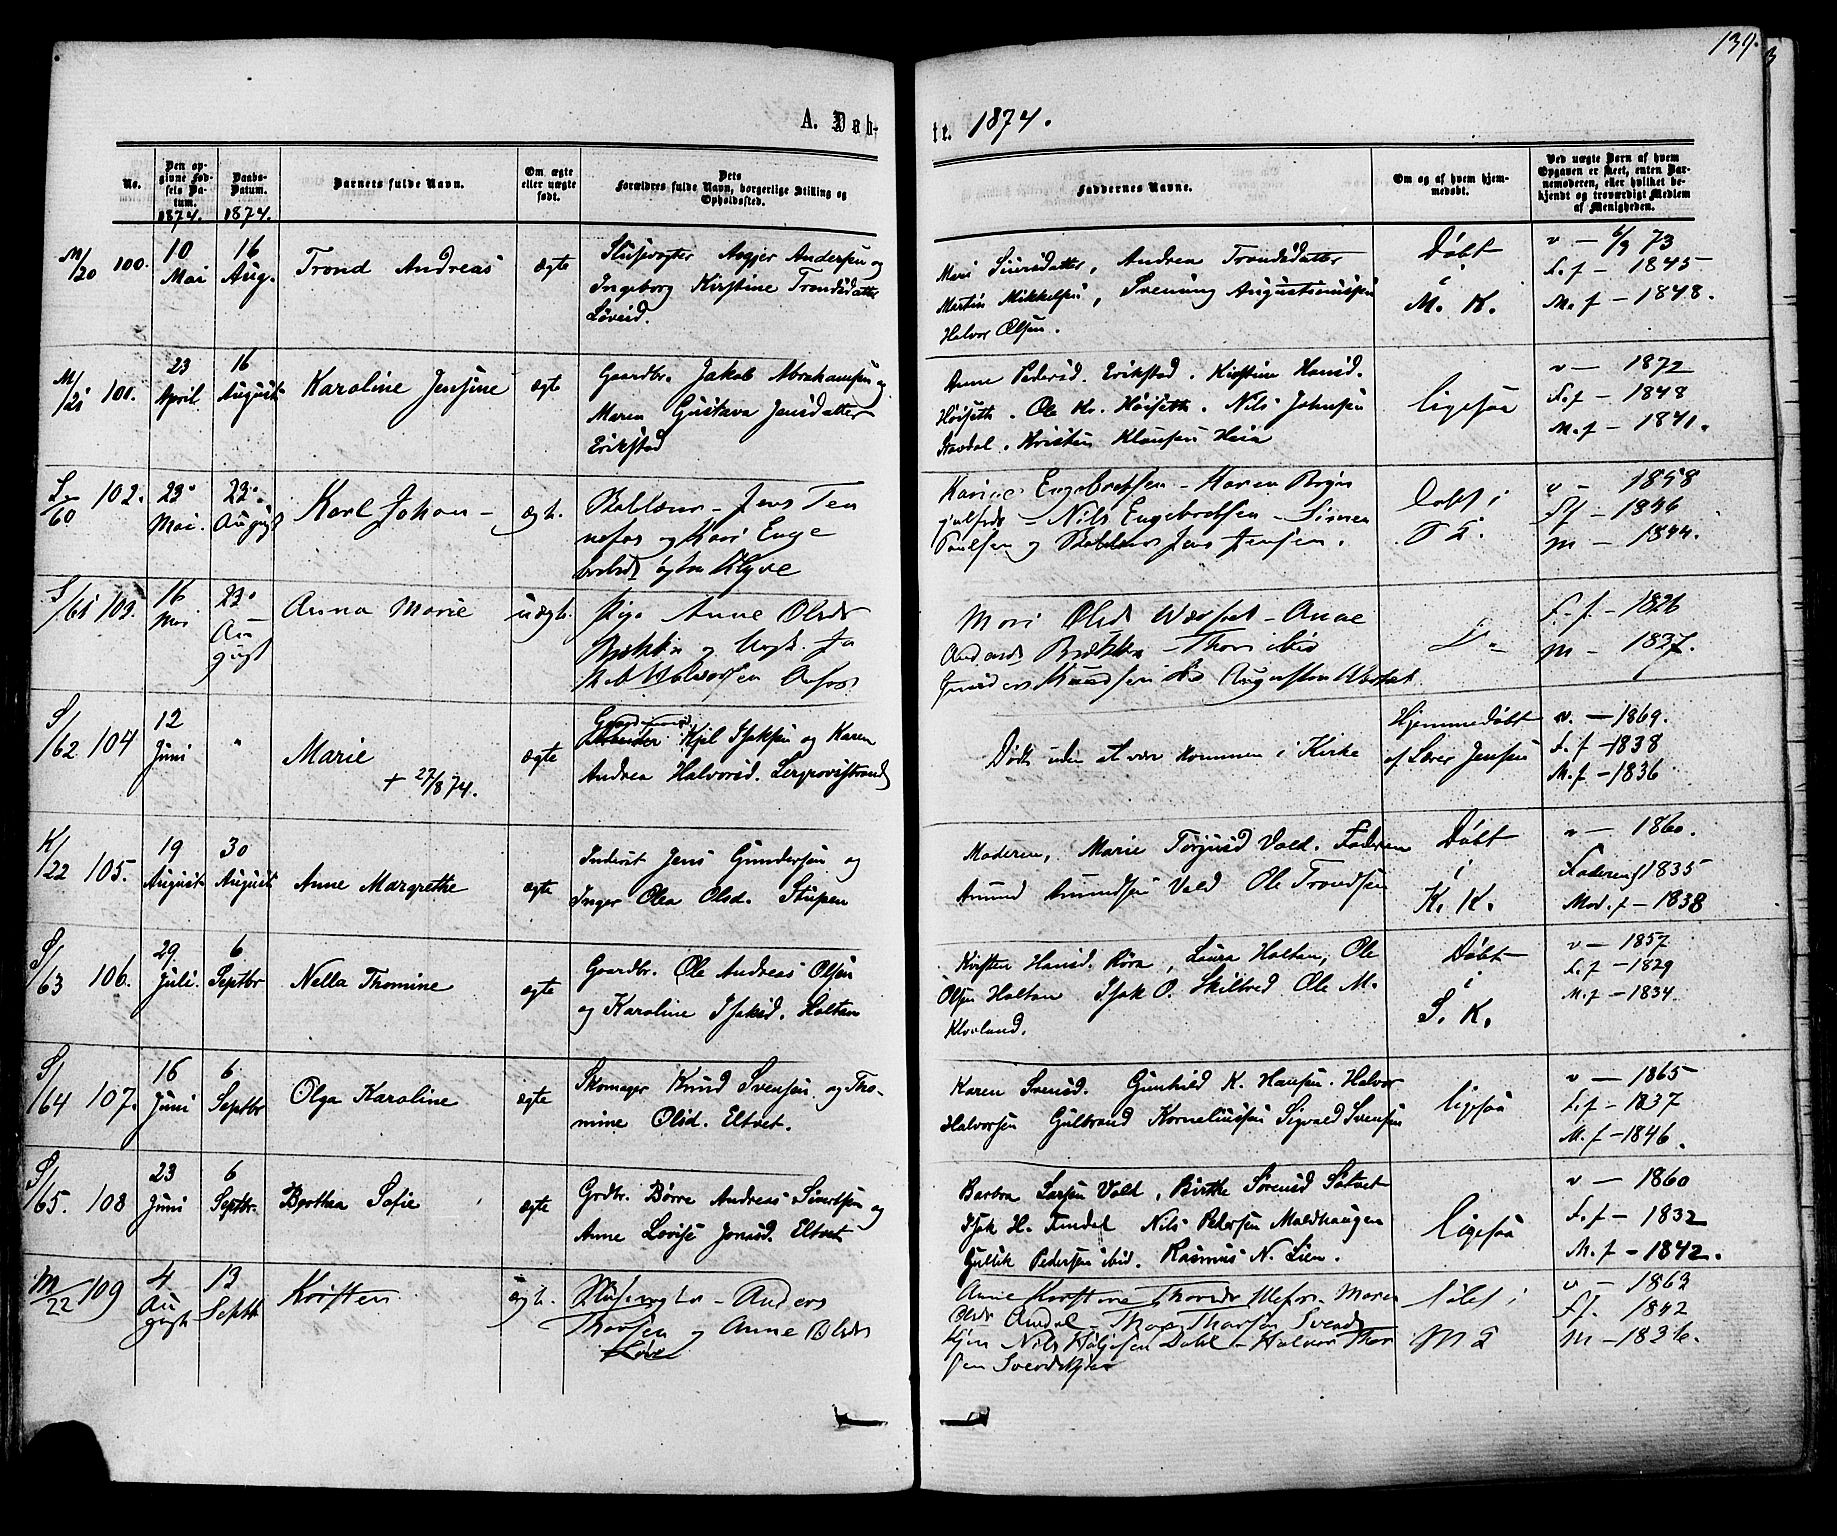 139.
A. Døb-
te. 1874.
No.
Den op-
givne Fød-
sels Da-
tum.
1874.
Daabs-
Datum.
1874.
Barnets fulde Navn.
Om ægte
eller uægte
født.
Dets
Forældres fulde Navn, borgerlige Stilling og
Opholdssted.
Faddernes Navne.
Om og af hvem hjem-
medøbt.
Ved uægte Børn af hvem
Opgaven er skeet, enten Bar-
nemoderen, eller hvilket be-
kjendt og troværdigt Medlem
af Menigheden.
M/20 100. 10 Mai 16 Aug. Trond Andreas ægte
Slusevogter Asgjer Andersen og
Ingeborg Kirstine Trondsdatter
Løveid.
Mari Siversdatter, Andrea Trondsdatter
Martin Mikkelsen, Svenung Augustinussen
Halvor Olsen.
Døbt
i
M. K.
v — 6/9 73
F. f — 1845
M. f — 1848.
M/21 101. 23 April 16 August Karoline Jensine ægte
Gaardbr. Jakob Abrahamsen og
Maren Gustava Jensdatter
Erikstad
Anne Pedersd. Erikstad. Kirstine Hansd.
Høiseth. Ole Kr. Høiseth. Nils Johnsen
Stavdal. Kristen Klausen Heia
ligesaa
v — 1872
F. f — 1848
M. f — 1841.
S/60 102. 23 Mai. 23 August Karl Johan ægt.
Jens Ten
nefos og Kari Enge
bretsd. Klyve
Karine Engebretsen - Maren Bryn
julfsd - Nils Engebretsen - Simen
Paulsen og Jens Jensen.
Døbt i
v — 1858
Ff — 1846
m — 1844.
S/61 103. 16 Mai 23 August Anna Marie uægt.
Pige Anne Olsd
og Ungk. Ja
kob Halvorsen
Mari Olsd - Anne
Andersd - Thor ibid
Knudsen
F. f — 1826
m — 1837.
S/62 104 12 Juni " Marie ægte
+ 27/8 74.
Kjil Isaksen og Karen
Andrea Halvorsd.
Døde uden at være kommen i Kirke
Hjemmedøbt
af Sører Jensen
v. — 1869.
F. f — 1838
M. f — 1836
K/22 105. 19 August 30 August Anne Margrethe ægte
Inderst Jens Gundersen og
Inger Olea Olsd. Stupen
Moderen, Marie Torjusd Vold. Faderen
Amund Amundsen Vold Ole Trondsen
Døbt
i
K. K.
v — 1860.
Faderens f 1835
Mod. f — 1838
S/63 106. 29 Juli. 6 Septbr Nella Thomine ægte
Gaardbr. Ole Andreas Olsen
og Karoline Isaksd. Holtan
Kirsten Hansd. Røra, Laura Holtan, Ole
Olsen Holtan Isak O. Skilbred Ole M.
Klovland.
Døbt
i
S. K.
v — 1857
F. f — 1829
M. f — 1834.
S/64 107. 16 Juni 6 Septbr Olga Karoline ægte
Skomager Knud Svensen og Tho-
mine Olsd. Eltvet.
Karen Svensd. Gunhild K. Hansen. Halvor
Halvorsen Gulbrand Korneliussen Sigvald Svensen
ligesaa
v — 1865
F. f — 1837
M. f — 1846.
S/65. 108 23 Juni 6 Septbr. Berthea Sofie ægte
Grdbr. Børre Andreas Sivertsen og
Anne Lovise Jonasd. Eltvet
Barbra Larsen Vold, Birthe Sørensd Solvet
Isak H. Findal Nils Pedersen Moldhaugen
Gullik Pedersen ibid. Rasmus N. Lien.
ligesaa
v — 1860
F. f — 1832
M. f — 1842.
M/22 109 4 August 13 Septb Kristen ægt.
Slusevogter - Anders
Thorsen og Anne Olsdr
Anne Kirstine Thorsdr Ulefos. Maren
Olsdr - Thor Thorsen Svends
Nils Dahl - Halvor Thor
sen
døbt i
v — 1863
Ff. — 1842
M — 1836.